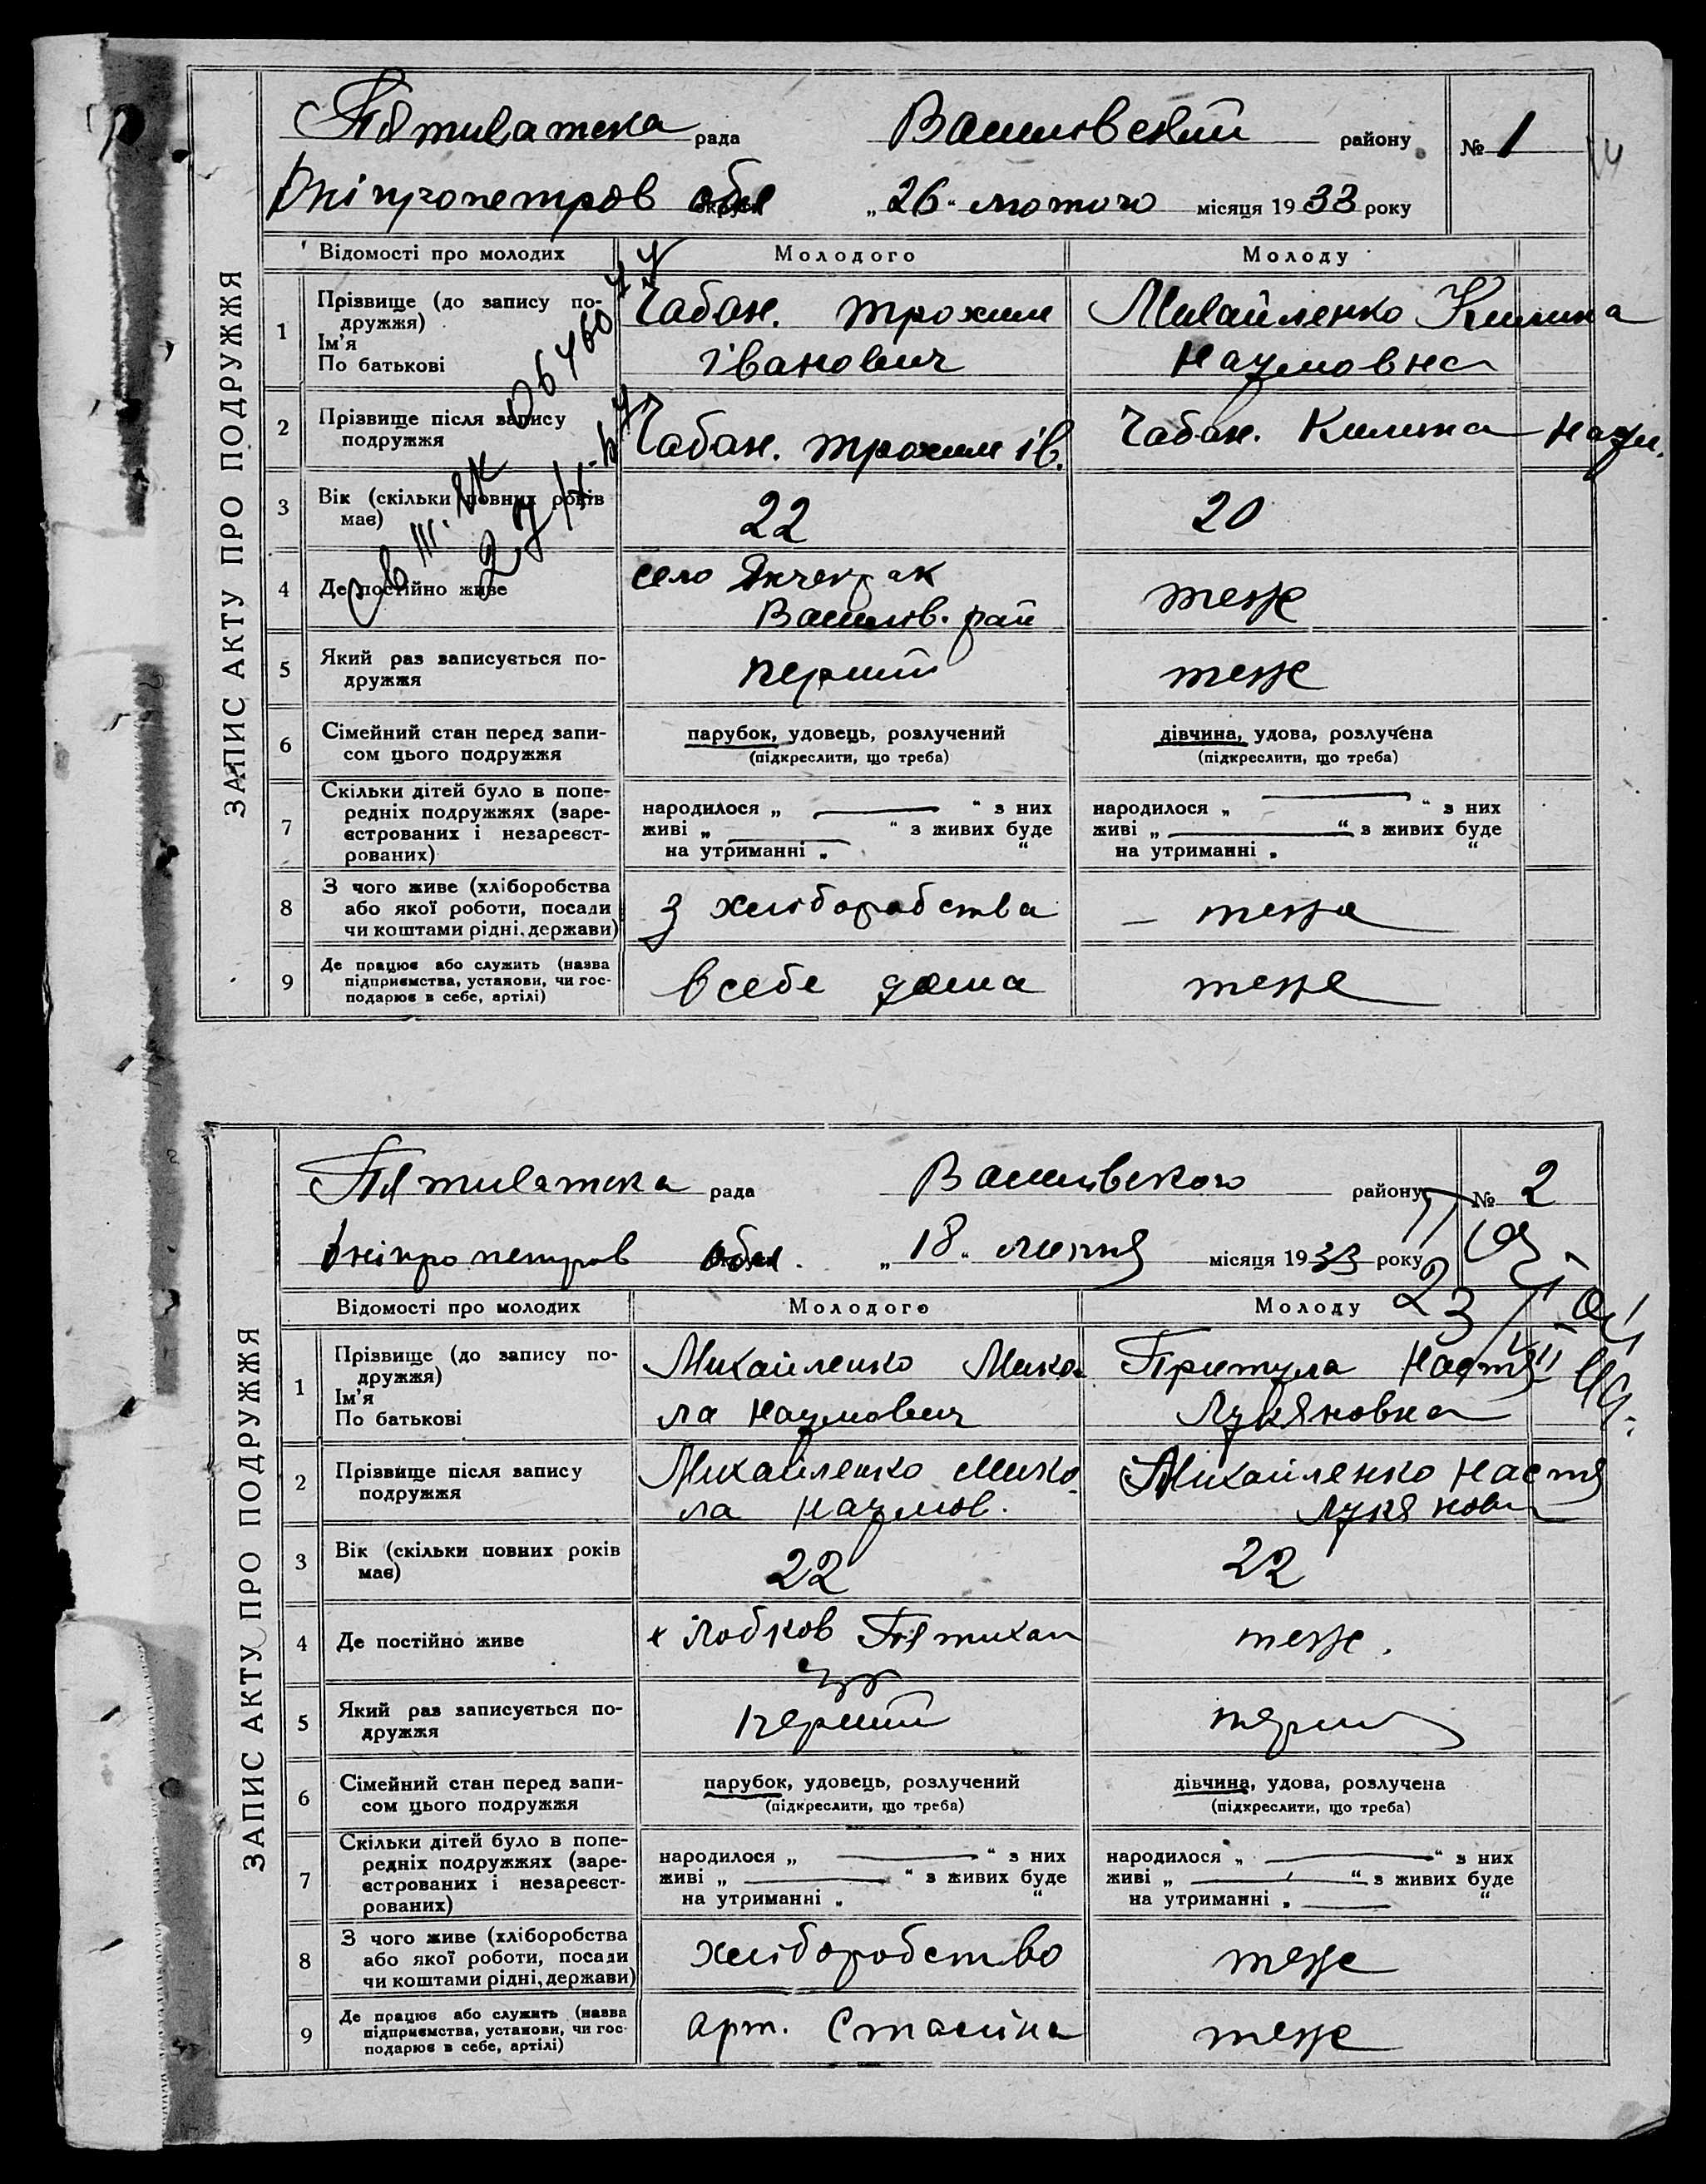 ЗАПИС АКТУ ПРО ПОДРУЖЖЯ
Пятихатска рада Василівский району № 1
Дніпропетров обл „26“ лютого місяця 1933 року
Відомості про молодих Молодого Молоду
1 Прізвище (до запису по-
дружжя)
Ім'я
По батькові
Чабан. Трохим
Іванович
Михайленко Килина
Наумовна
2 Прізвище після запису
подружжя
Чабан. Трохим Ів.
Чабан. Килина Наум.
3 Вік (скільки повних років
має)
22
20
4 Де постійно живе
село Янчекрак
Василів. рай
теже
5 Який раз записується по-
дружжя
перший
теже
6 Сімейний стан перед запи-
сом цього подружжя
парубок, удовець, розлучений
(підкреслити, що треба)
дівчина, удова, розлучена
(підкреслити, що треба)
7 Скільки дітей було в попе-
редніх подружжях (заре-
єстрованих і незареєст-
рованих)
народилося „ — “ з них
живі „ — “ з живих буде
на утриманні „ “
народилося „ — “ з них
живі „ — “ з живих буде
на утриманні „ “
8 З чого живе (хліборобства
або якої роботи, посади
чи коштами рідні, держави)
З хліборобства
— теже
9 Де працює або служить (назва
підприємства, установи, чи гос-
подарює в себе, артілі)
в себе дома
теже
ЗАПИС АКТУ ПРО ПОДРУЖЖЯ
Пятихатска рада Василівского району № 2
Дніпропетров обл. „18“ липня місяця 1933 року
Відомості про молодих Молодого Молоду
1 Прізвище (до запису по-
дружжя)
Ім'я
По батькові
Михайленко Мико
ла Наумович
Притула Настя
Лукяновна
2 Прізвище після запису
подружжя
Михайленко Мико
ла Наумов.
Михайленко Настя
Лукянов
3 Вік (скільки повних років
має)
22
22
4 Де постійно живе
х Лобков Пятихат
теже.
5 Який раз записується по-
дружжя
перший
6 Сімейний стан перед запи-
сом цього подружжя
парубок, удовець, розлучений
(підкреслити, що треба)
дівчина, удова, розлучена
(підкреслити, що треба)
7 Скільки дітей було в попе-
редніх подружжях (заре-
єстрованих і незареєст-
рованих)
народилося „ — “ з них
живі „ — “ з живих буде
на утриманні „ “
народилося „ — “ з них
живі „ — “ з живих буде
на утриманні „ — “
8 З чого живе (хліборобства
або якої роботи, посади
чи коштами рідні, держави)
хліборобство
теже
9 Де працює або служить (назва
підприємства, установи, чи гос-
подарює в себе, артілі)
арт. Сталіна
теже